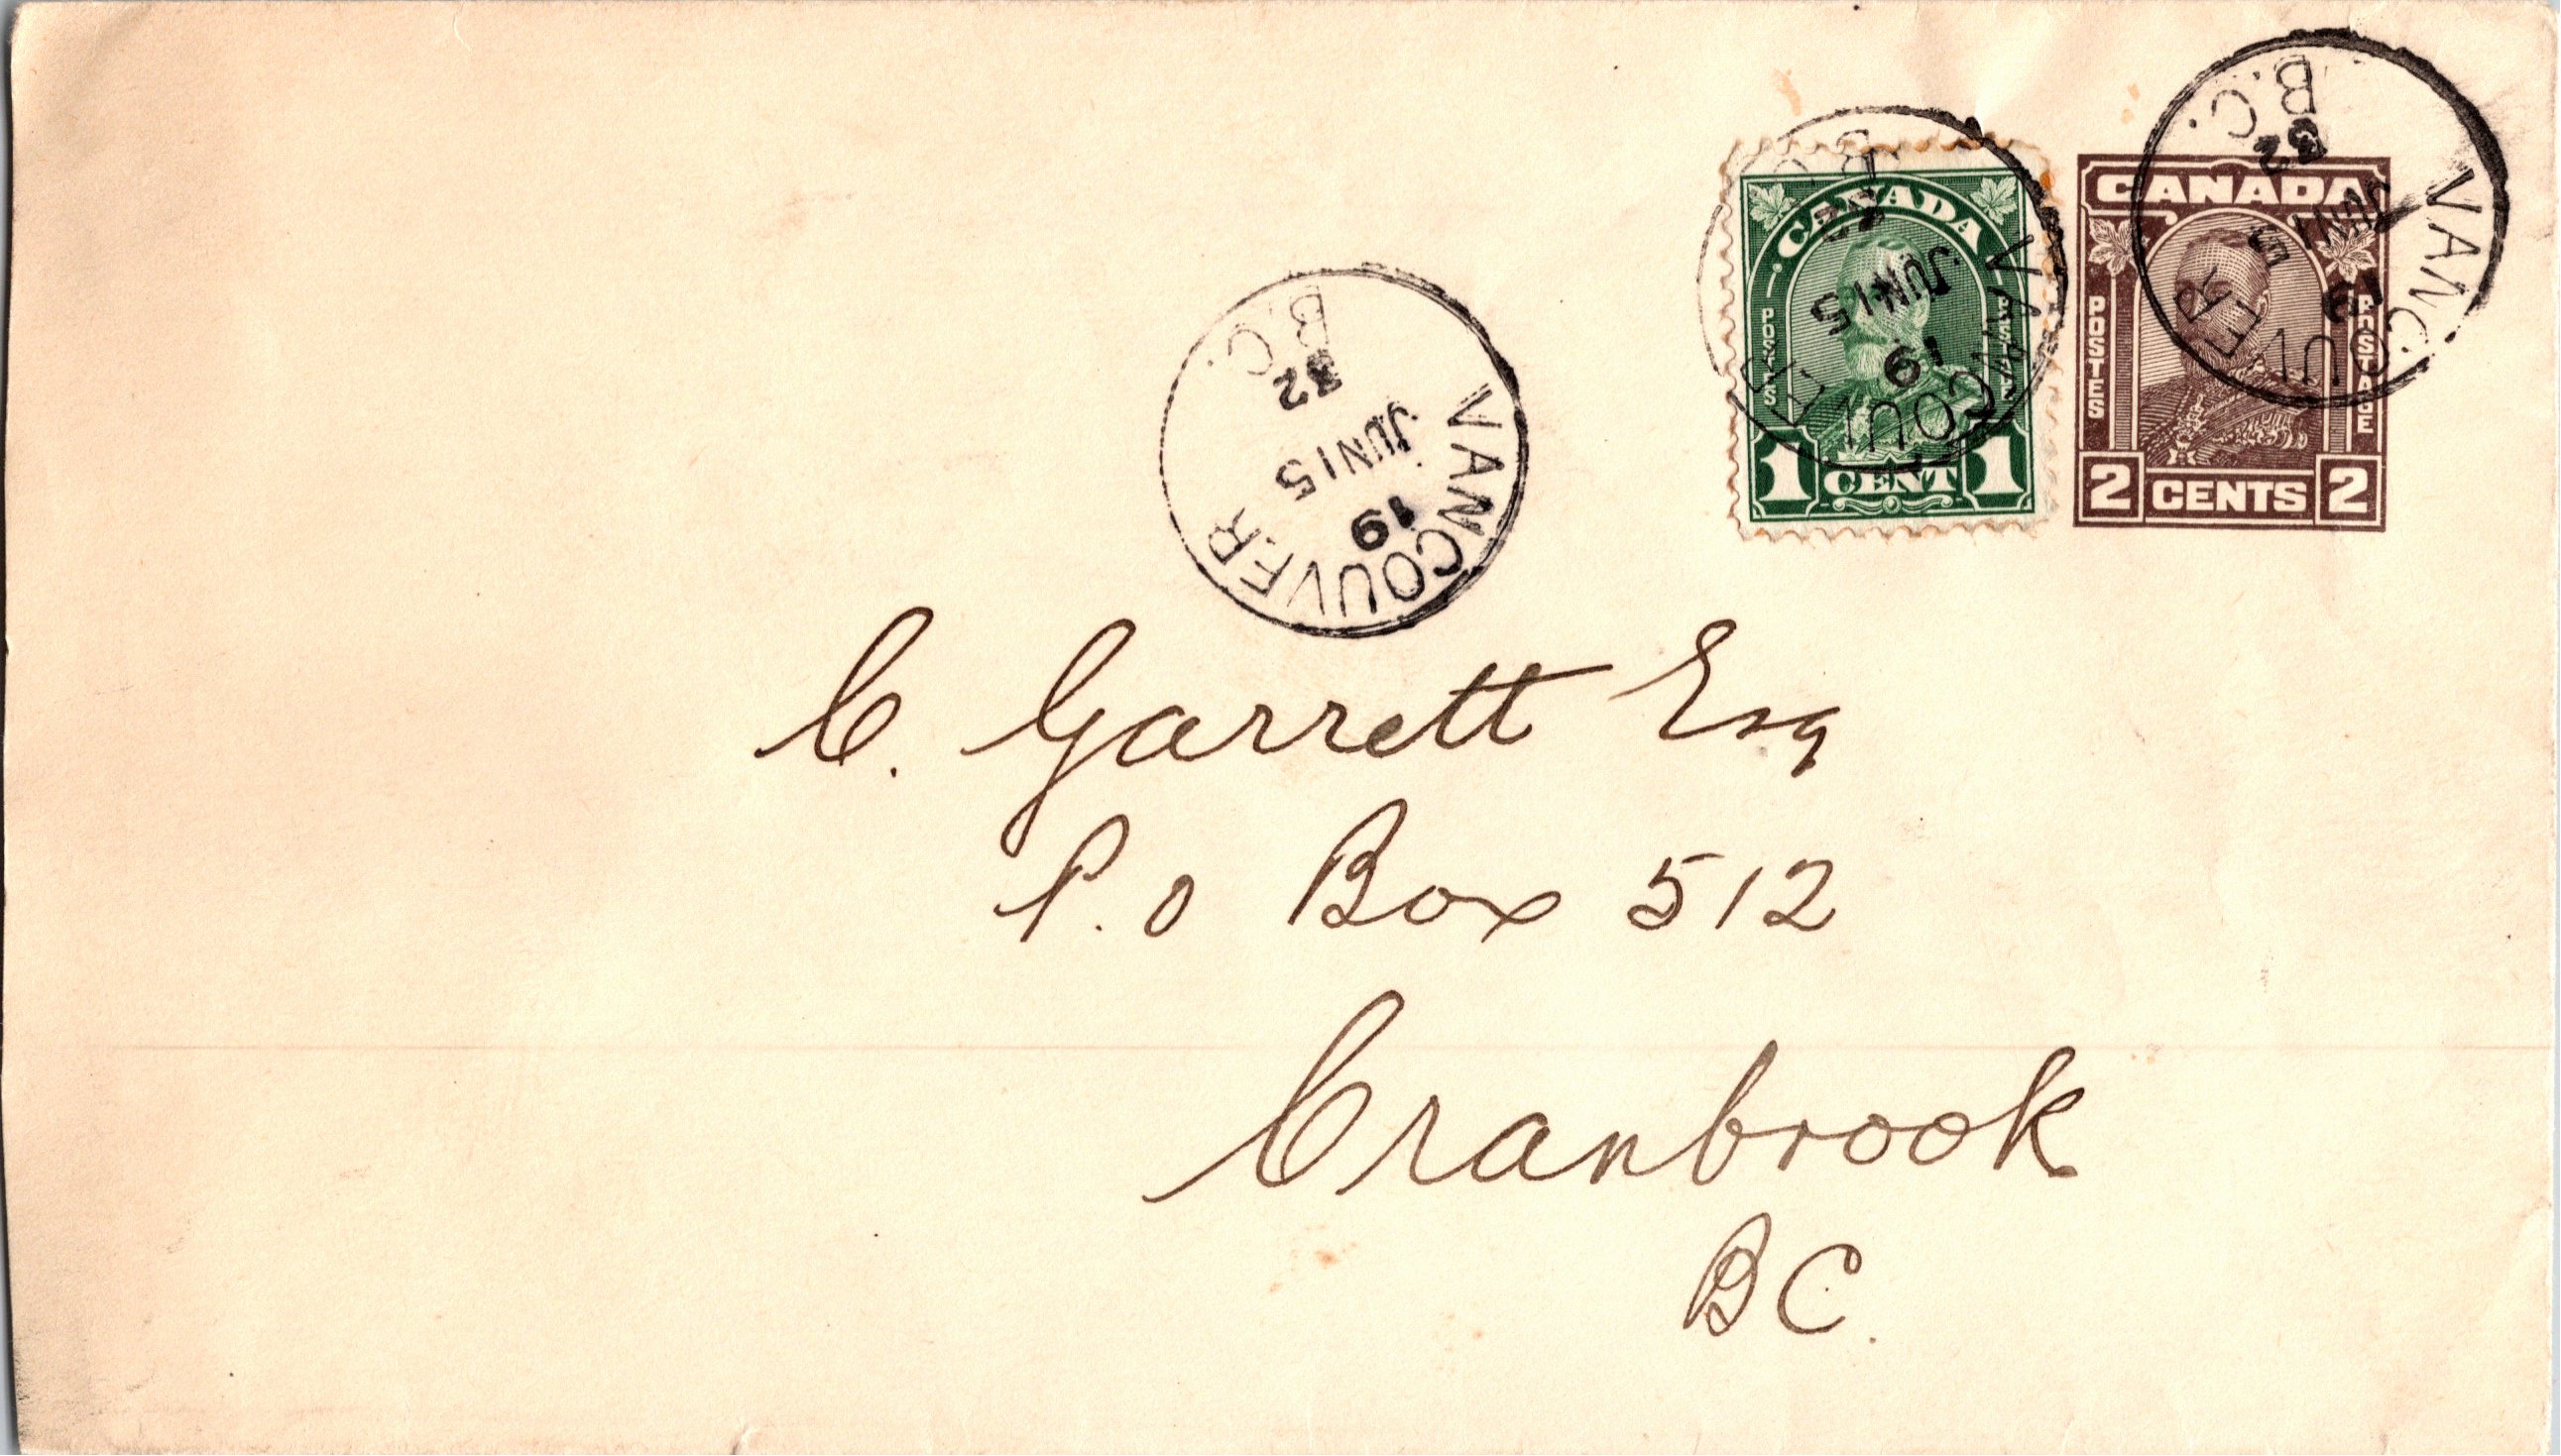 VANCOUVER
19
JUN 15
32
B.C.
CANADA
POSTES
1 CENT 1
VANCOUVER
19
JUN 15
32
B.C.
CANADA
POSTES POSTAGE
2 CENTS 2
VANCOUVER
19
JUN 15
32
B.C.
C. Garrett Esq
P.O Box 512
Cranbrook
BC.